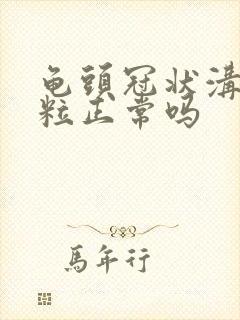 龟頭冠状溝
粒正常吗
馬年行